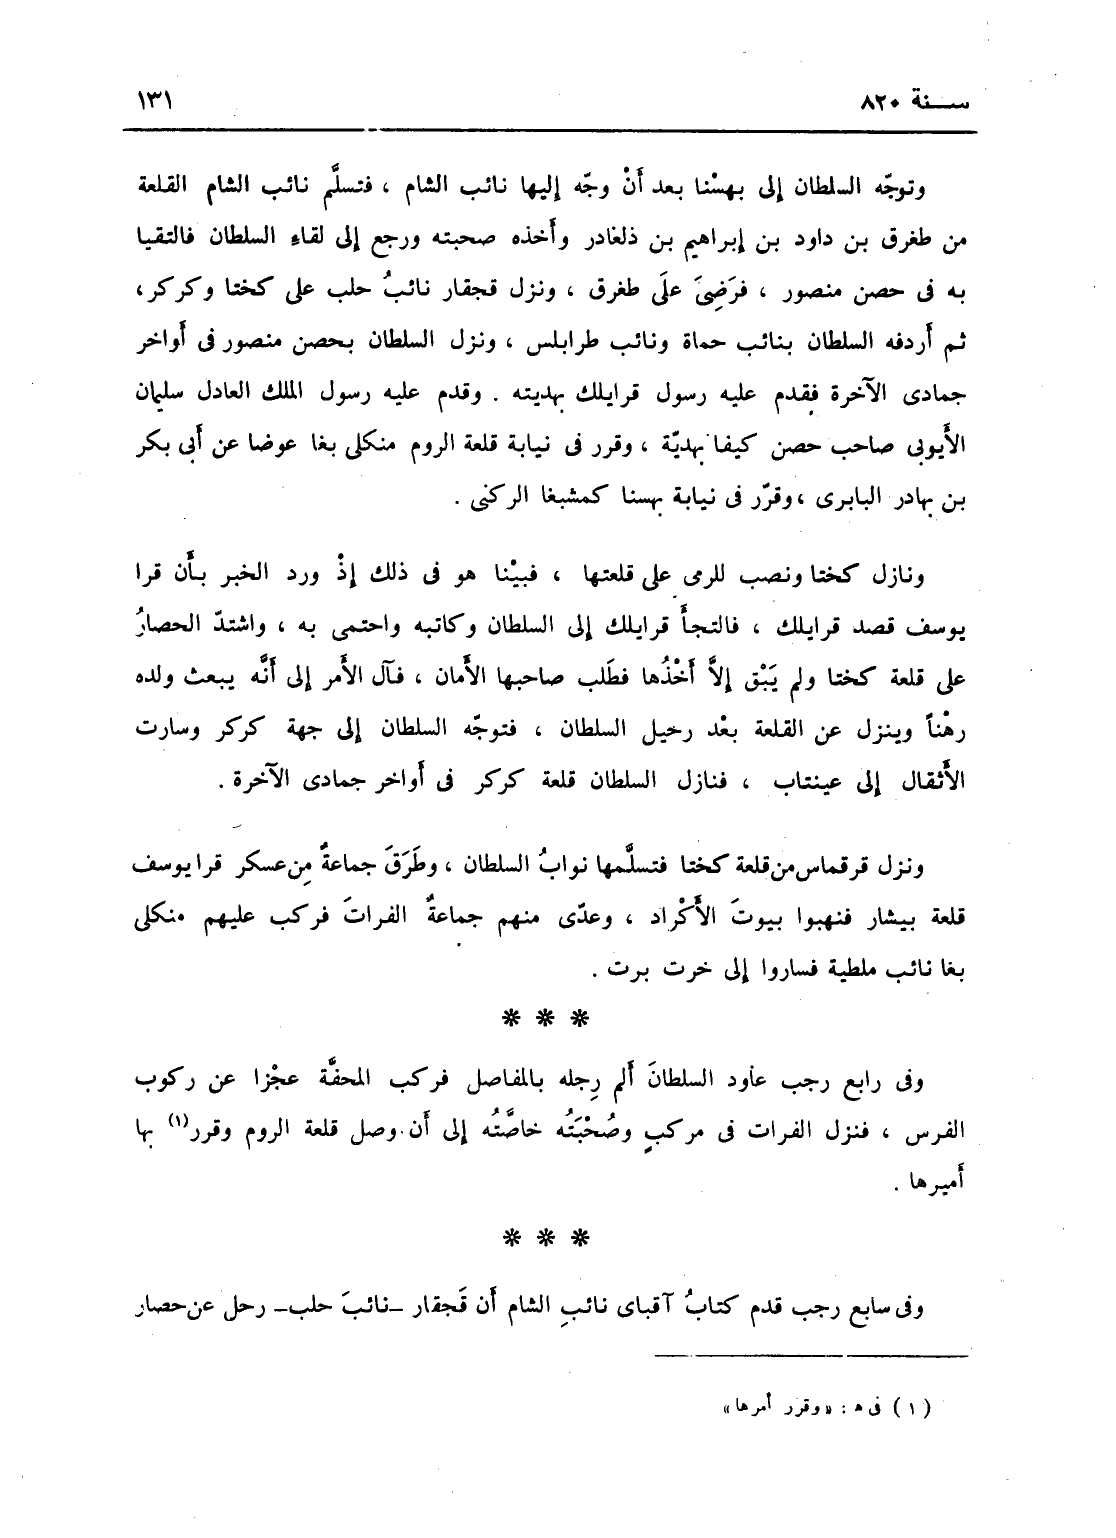 سنة ٨٢٠ ١٣١
وتوجّه السلطان إلى بهسْنا بعد أَنْ وجّه إليها نائب الشام ، فتسلَّم نائب الشام القلعة
من طغرق بن داود بن إبراهيم بن ذلغادر وأَخذه صحبته ورجع إلى لقاءِ السلطان فالتقيا
به فى حصن منصور ، فرَضِىَ علَى طغرق ، ونزل قجقار نائبُ حلب على كختا وكركر،
ثم أَردفه السلطان بنائب حماة ونائب طرابلس ، ونزل السلطان بحصن منصور فى أَواخر
جمادى الآخرة فقدم عليه رسول قرايلك بهديته . وقدم عليه رسول الملك العادل سليمان
الأَيوبى صاحب حصن كيفا بهديّة ، وقرر فى نيابة قلعة الروم منكلى بغا عوضا عن أَبى بكر
بن بهادر البابرى ، وقرّر فى نيابة بهسنا كمشبغا الركنى .
ونازل كختا ونصب للرمى على قلعتها ، فبيْنا هو فى ذلك إِذْ ورد الخبر بأَن قرا
يوسف قصد قرايلك ، فالتجأَ قرايلك إلى السلطان وكاتبه واحتمى به ، واشتدّ الحصارُ
على قلعة كختا ولم يَبْق إِلاَّ أَخْذُها فطَلب صاحبها الأَمان ، فآل الأَمر إلى أَنَّه يبعث ولده
رهْناً وينزل عن القلعة بعْد رحيل السلطان ، فتوجّه السلطان إلى جهة كركر وسارت
الأَثقال إلى عينتاب ، فنازل السلطان قلعة كركر فى أَواخر جمادى الآخرة .
ونزل قرقماس من قلعة كختا فتسلَّمها نوابُ السلطان ، وطَرَقَ جماعةٌ مِن عسكر قرا يوسف
قلعة بيشار فنهبوا بيوتَ الأَكْراد ، وعدّى منهم جماعةٌ الفراتَ فركب عليهم منكلى
بغا نائب ملطية فساروا إلى خرت برت .
* * *
وفى رابع رجب عاود السلطانَ أَلم رِجله بالمفاصل فركب المحفَّة عجْزا عن ركوب
الفرس ، فنزل الفرات فى مركبٍ وصُحْبَتُه خاصَّتُه إلى أَن وصل قلعة الروم وقرر(١) بها
أَميرها .
* * *
وفى سابع رجب قدم كتابُ آقباى نائبِ الشام أَن قَجقار –نائبَ حلب– رحل عن حصار
(١) فى ه : «وقرر أمرها»